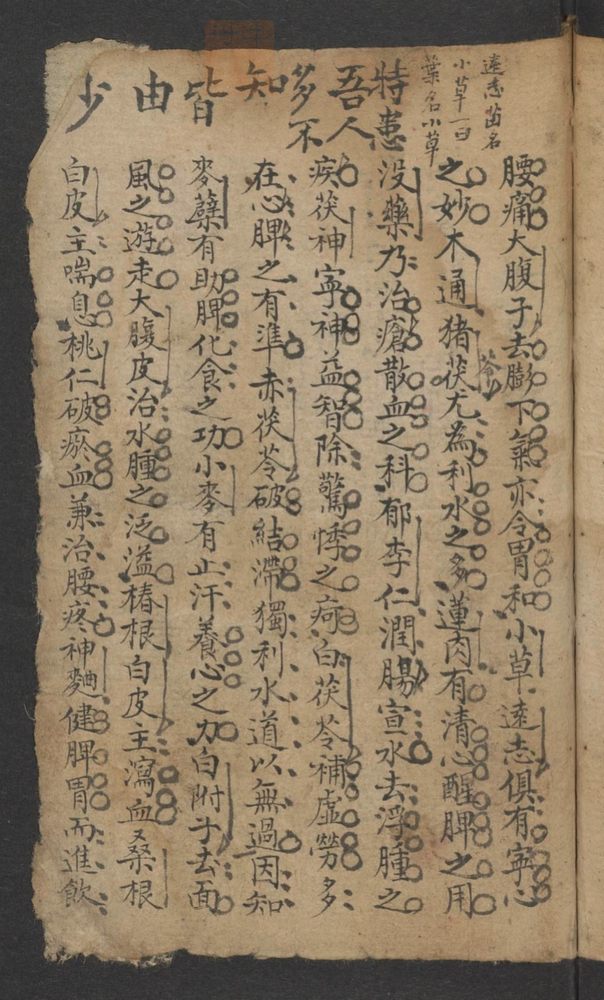 遠志苗名
小草一曰
葉名小草
特患
吾人
多不
知
皆
由
少
腰痛大腹子去膨下氣亦令胃和小草遠志俱有寧心
之妙木通猪苓茯尤為利水之多蓮肉有清心醒脾之用
沒藥乃治瘡散血之科郁李仁潤腸宣水去浮腫之
疾茯神寧神益智除驚悸之疴白茯苓補虛勞多
在心脾之有準赤茯苓破結滯獨利水道以無過因知
麥蘗有助脾化食之功小麥有止汗養心之力白附子去面
風之遊走大腹皮治水腫之泛溢椿根白皮主瀉血又桑根
白皮主喘息桃仁破瘀血兼治腰疼神麯健脾胃而進飲